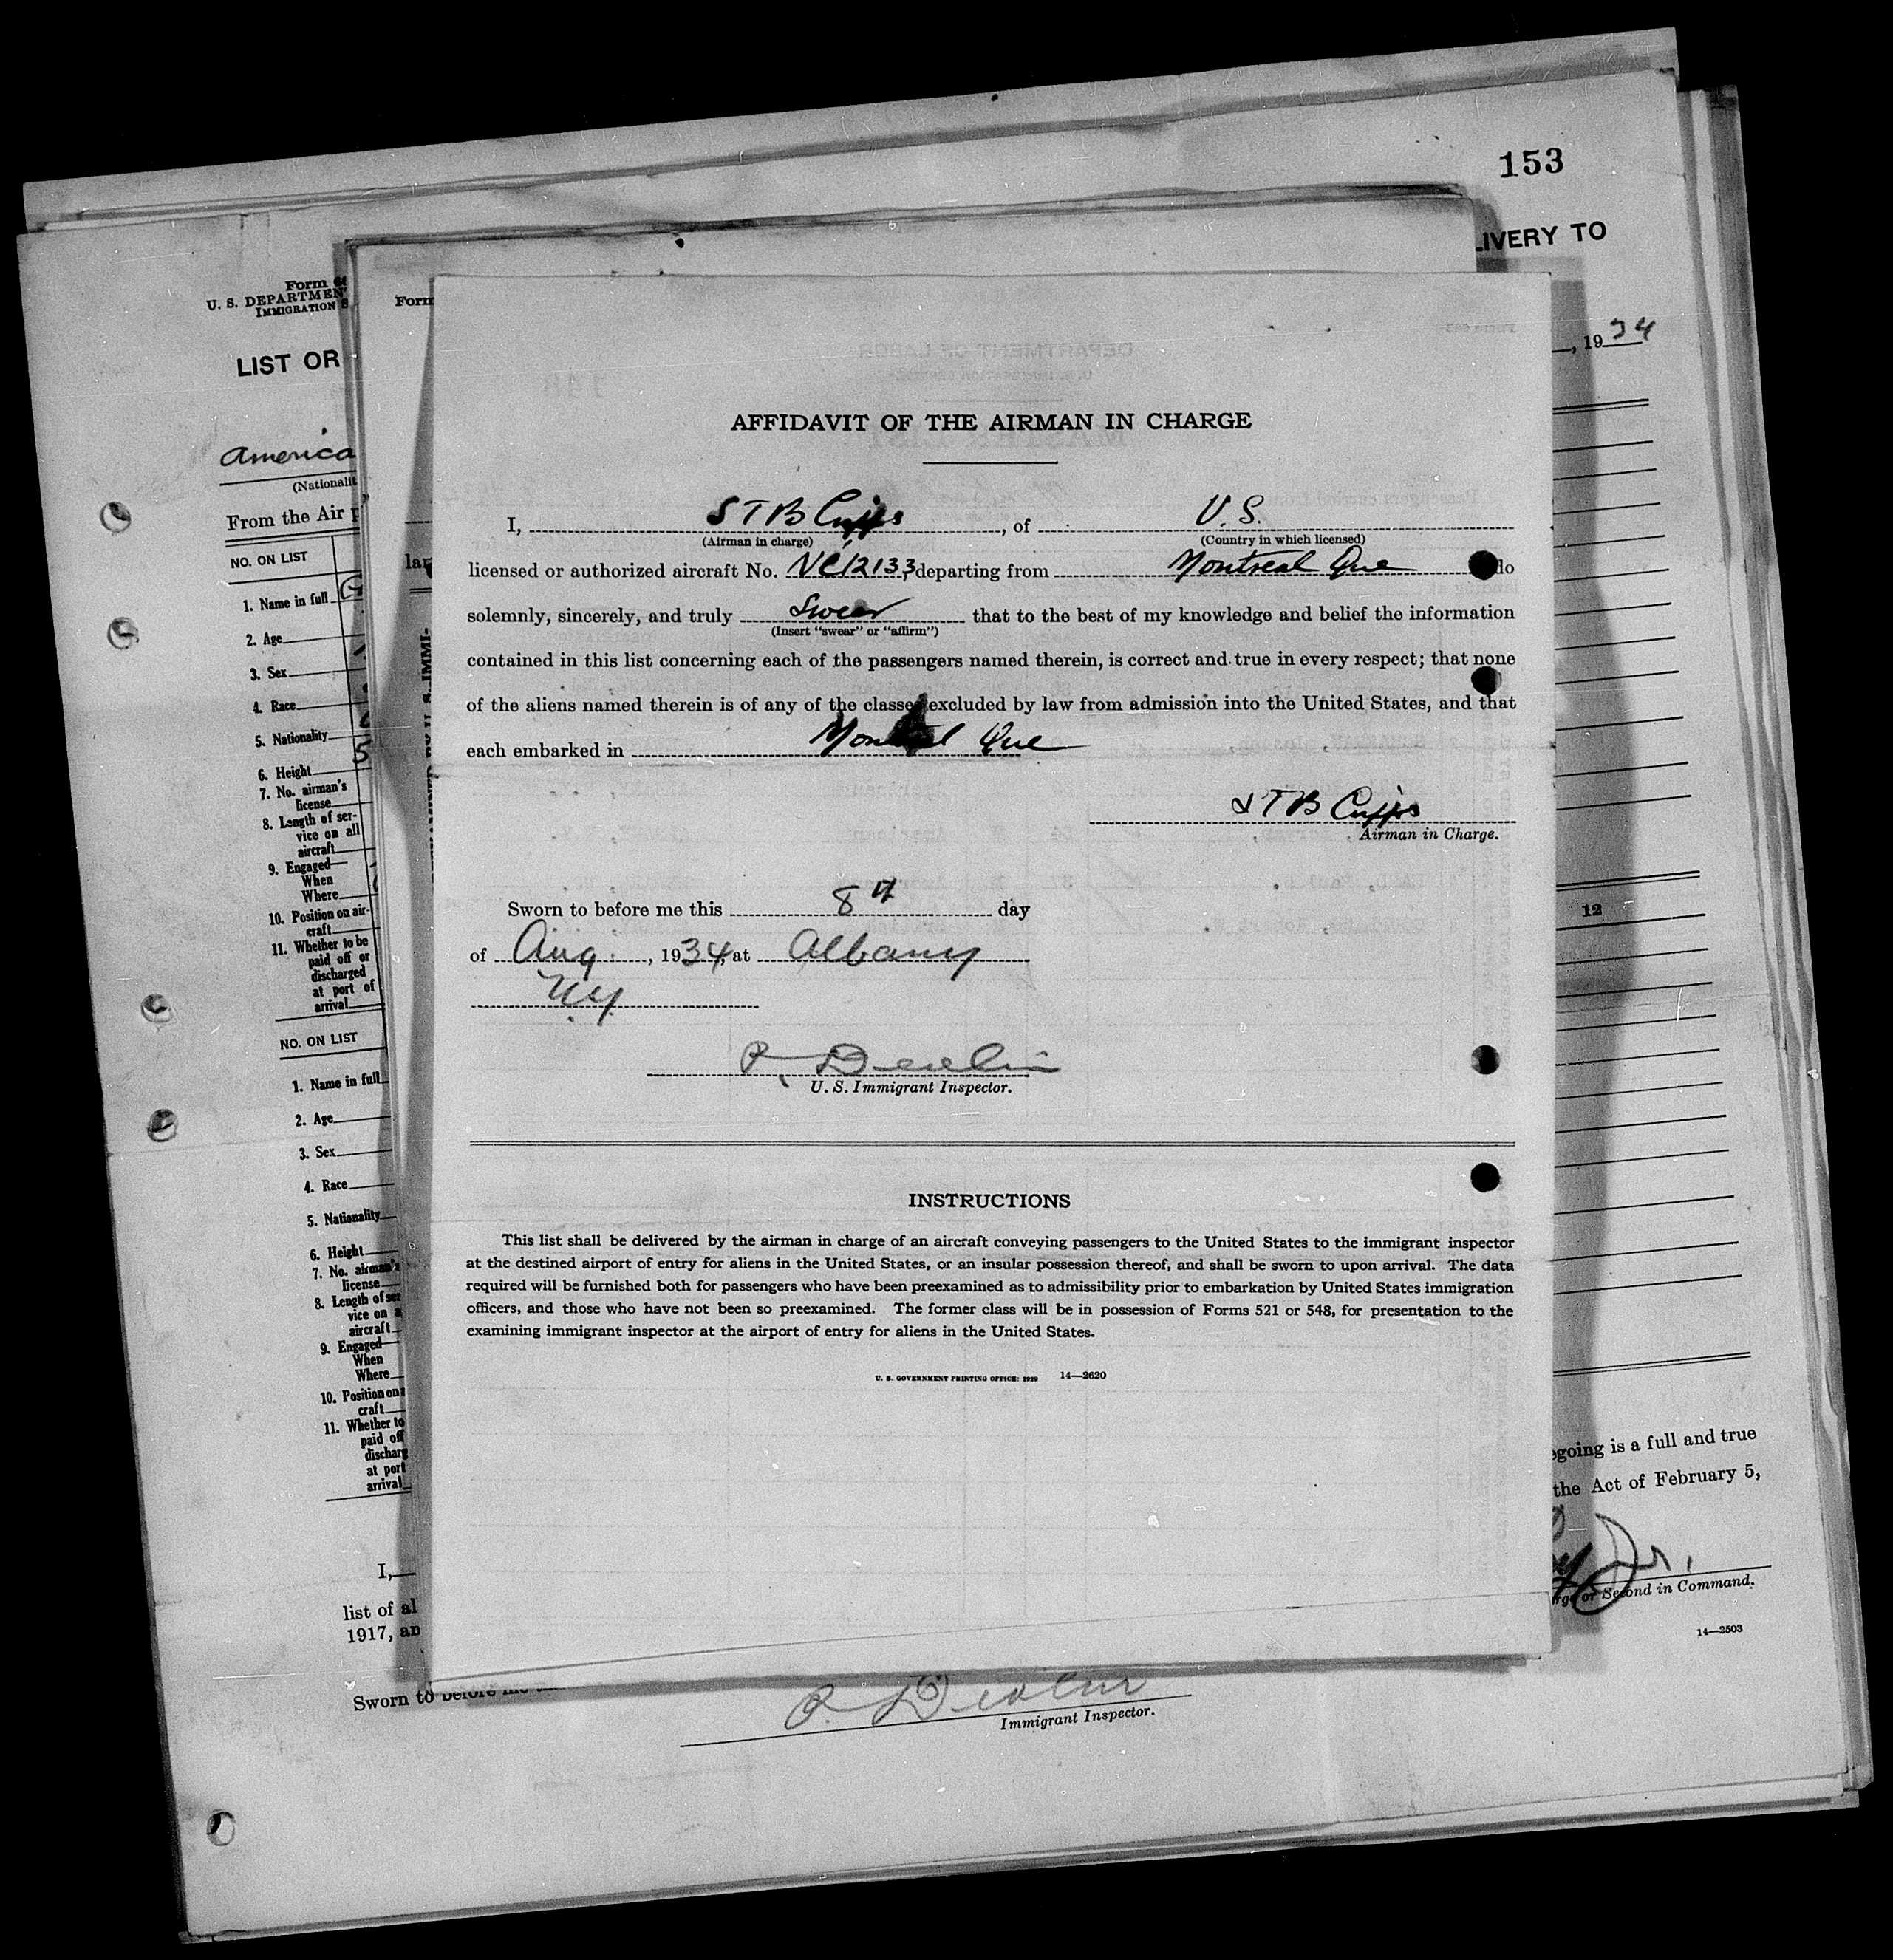 153
LIVERY TO
Form
U. S. DEPARTMEN
IMMIGRATION S
Form
LIST OR
, 1934
America
(Nationalit
From the Air p
NO. ON LIST
1. Name in full
2. Age
3. Sex
4. Race
5. Nationality
6. Height
7. No. airman's
license
8. Length of ser-
vice on all
aircraft
9. Engaged
When
Where
10. Position on air-
craft
11. Whether to be
paid off or
discharged
at port of
arrival
NO. ON LIST
1. Name in full
2. Age
3. Sex
4. Race
5. Nationality
6. Height
7. No. airman's
license
8. Length of ser
vice on a
aircraft
9. Engaged
When
Where
10. Position on
craft
11. Whether to
paid off
discharg
at port
arrival
I,
list of al
1917, an
Sworn to before me
AFFIDAVIT OF THE AIRMAN IN CHARGE
I, S T B Cripps, of U. S.
(Airman in charge) (Country in which licensed)
licensed or authorized aircraft No. NC12133, departing from Montreal Que do
solemnly, sincerely, and truly Swear that to the best of my knowledge and belief the information
(Insert "swear" or "affirm")
contained in this list concerning each of the passengers named therein, is correct and true in every respect; that none
of the aliens named therein is of any of the classes excluded by law from admission into the United States, and that
each embarked in Montreal Que
S T B Cripps
Airman in Charge.
Sworn to before me this 8th day
of Aug., 1934, at Albany
N.Y.
P. Devlin
U. S. Immigrant Inspector.
INSTRUCTIONS
This list shall be delivered by the airman in charge of an aircraft conveying passengers to the United States to the immigrant inspector
at the destined airport of entry for aliens in the United States, or an insular possession thereof, and shall be sworn to upon arrival. The data
required will be furnished both for passengers who have been preexamined as to admissibility prior to embarkation by United States immigration
officers, and those who have not been so preexamined. The former class will be in possession of Forms 521 or 548, for presentation to the
examining immigrant inspector at the airport of entry for aliens in the United States.
U. S. GOVERNMENT PRINTING OFFICE: 1929 14—2620
12
egoing is a full and true
the Act of February 5,
Jr.
rge or Second in Command.
14—2503
P. Devlin
Immigrant Inspector.